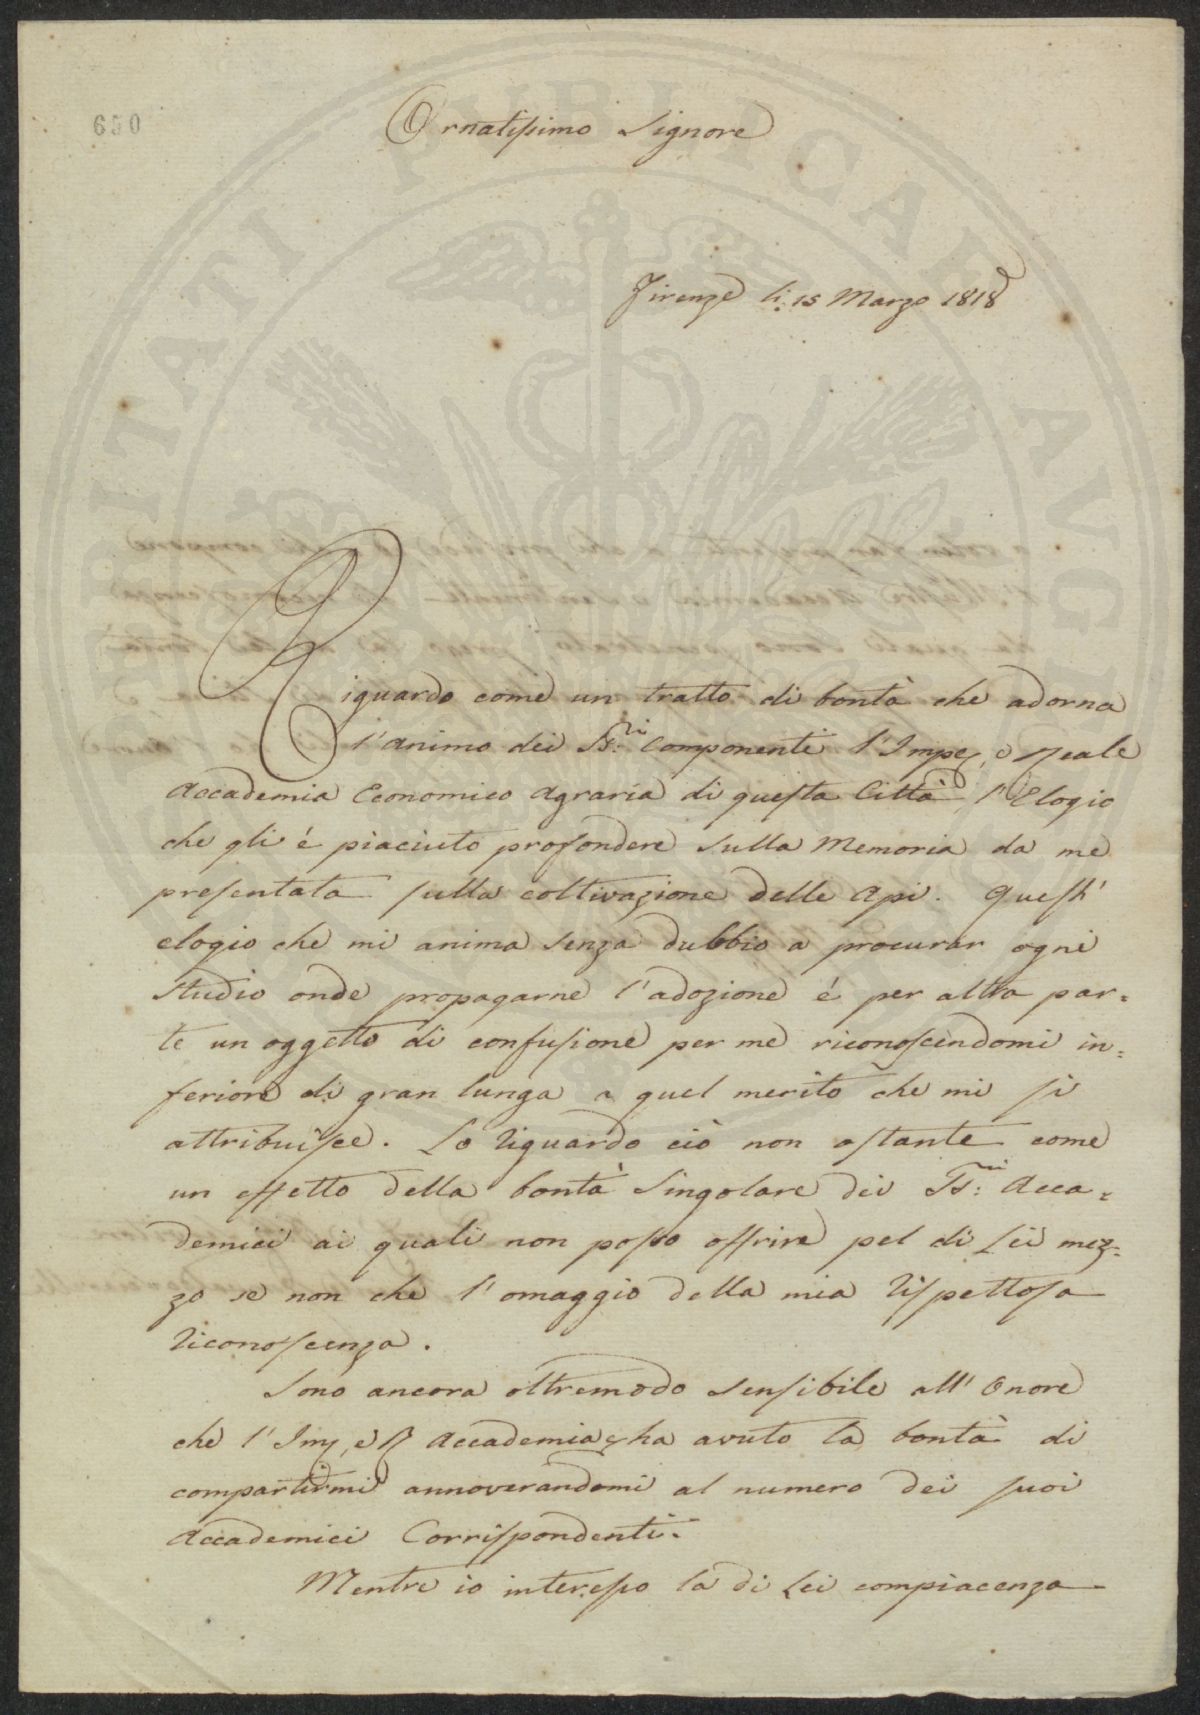 650
Ornatissimo Signore
Firenze li: 15 Marzo 1818
Riguardo come un tratto di bontà che adorna
l'animo dei SS:ri Componenti l'Imp., e Reale
Accademia Economico Agraria di questa Città l'Elogio
che gli é piaciuto profondere sulla Memoria da me
presentata sulla coltivazione delle Api. Quest'
elogio che mi anima senza dubbio a procurar ogni
studio onde propagarne l'adozione é per altra par=
te un oggetto di confusione per me riconoscendomi in=
feriore di gran lunga a quel merito che mi si
attribuisce. Lo riguardo ciò non ostante come
un effetto della bontà singolare dei SS:ri Acca=
demici ai quali non posso offrire pel di Lei mez=
zo se non che l'omaggio della mia rispettosa
riconoscenza.
Sono ancora oltremodo sensibile all'Onore
che l'Imp, e R Accademia ha avuto la bontà di
compartirmi annoverandomi al numero dei suoi
Accademici Corrispondenti.
Mentre io interesso la di Lei compiacenza